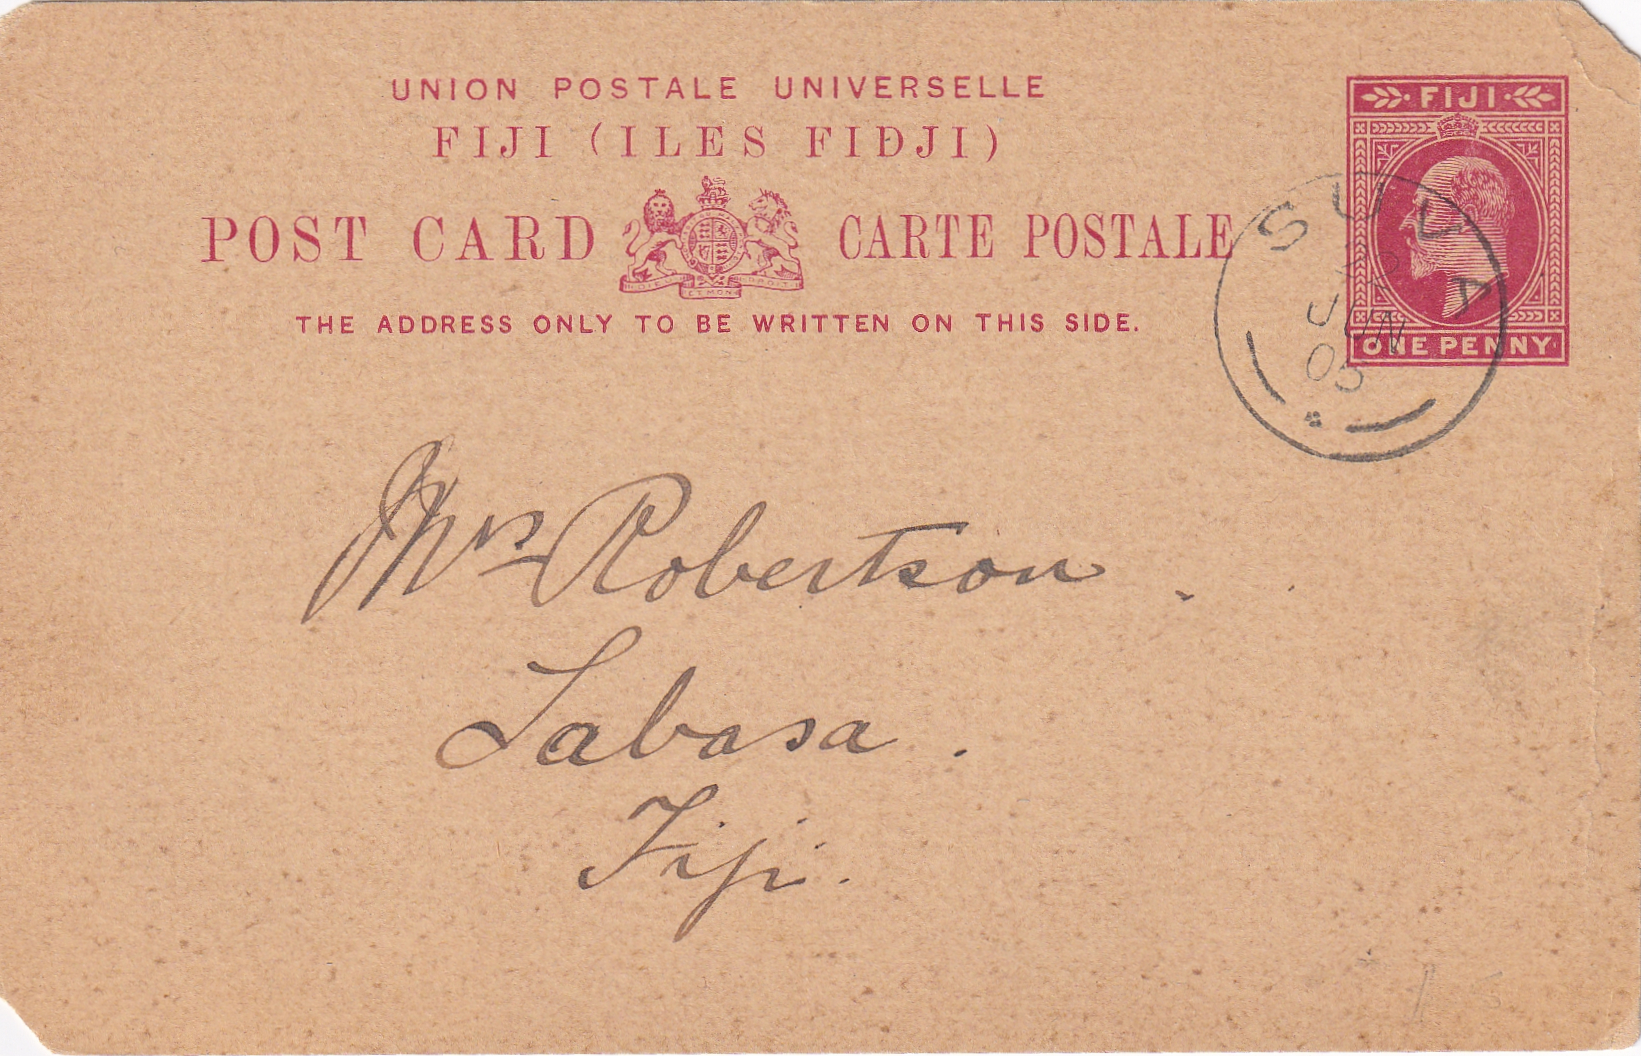 UNION POSTALE UNIVERSELLE
FIJI (ILES FIDJI)
POST CARD CARTE POSTALE
THE ADDRESS ONLY TO BE WRITTEN ON THIS SIDE.
FIJI
ONE PENNY
SUVA
JUN
05
Mrs Robertson
Labasa.
Fiji.